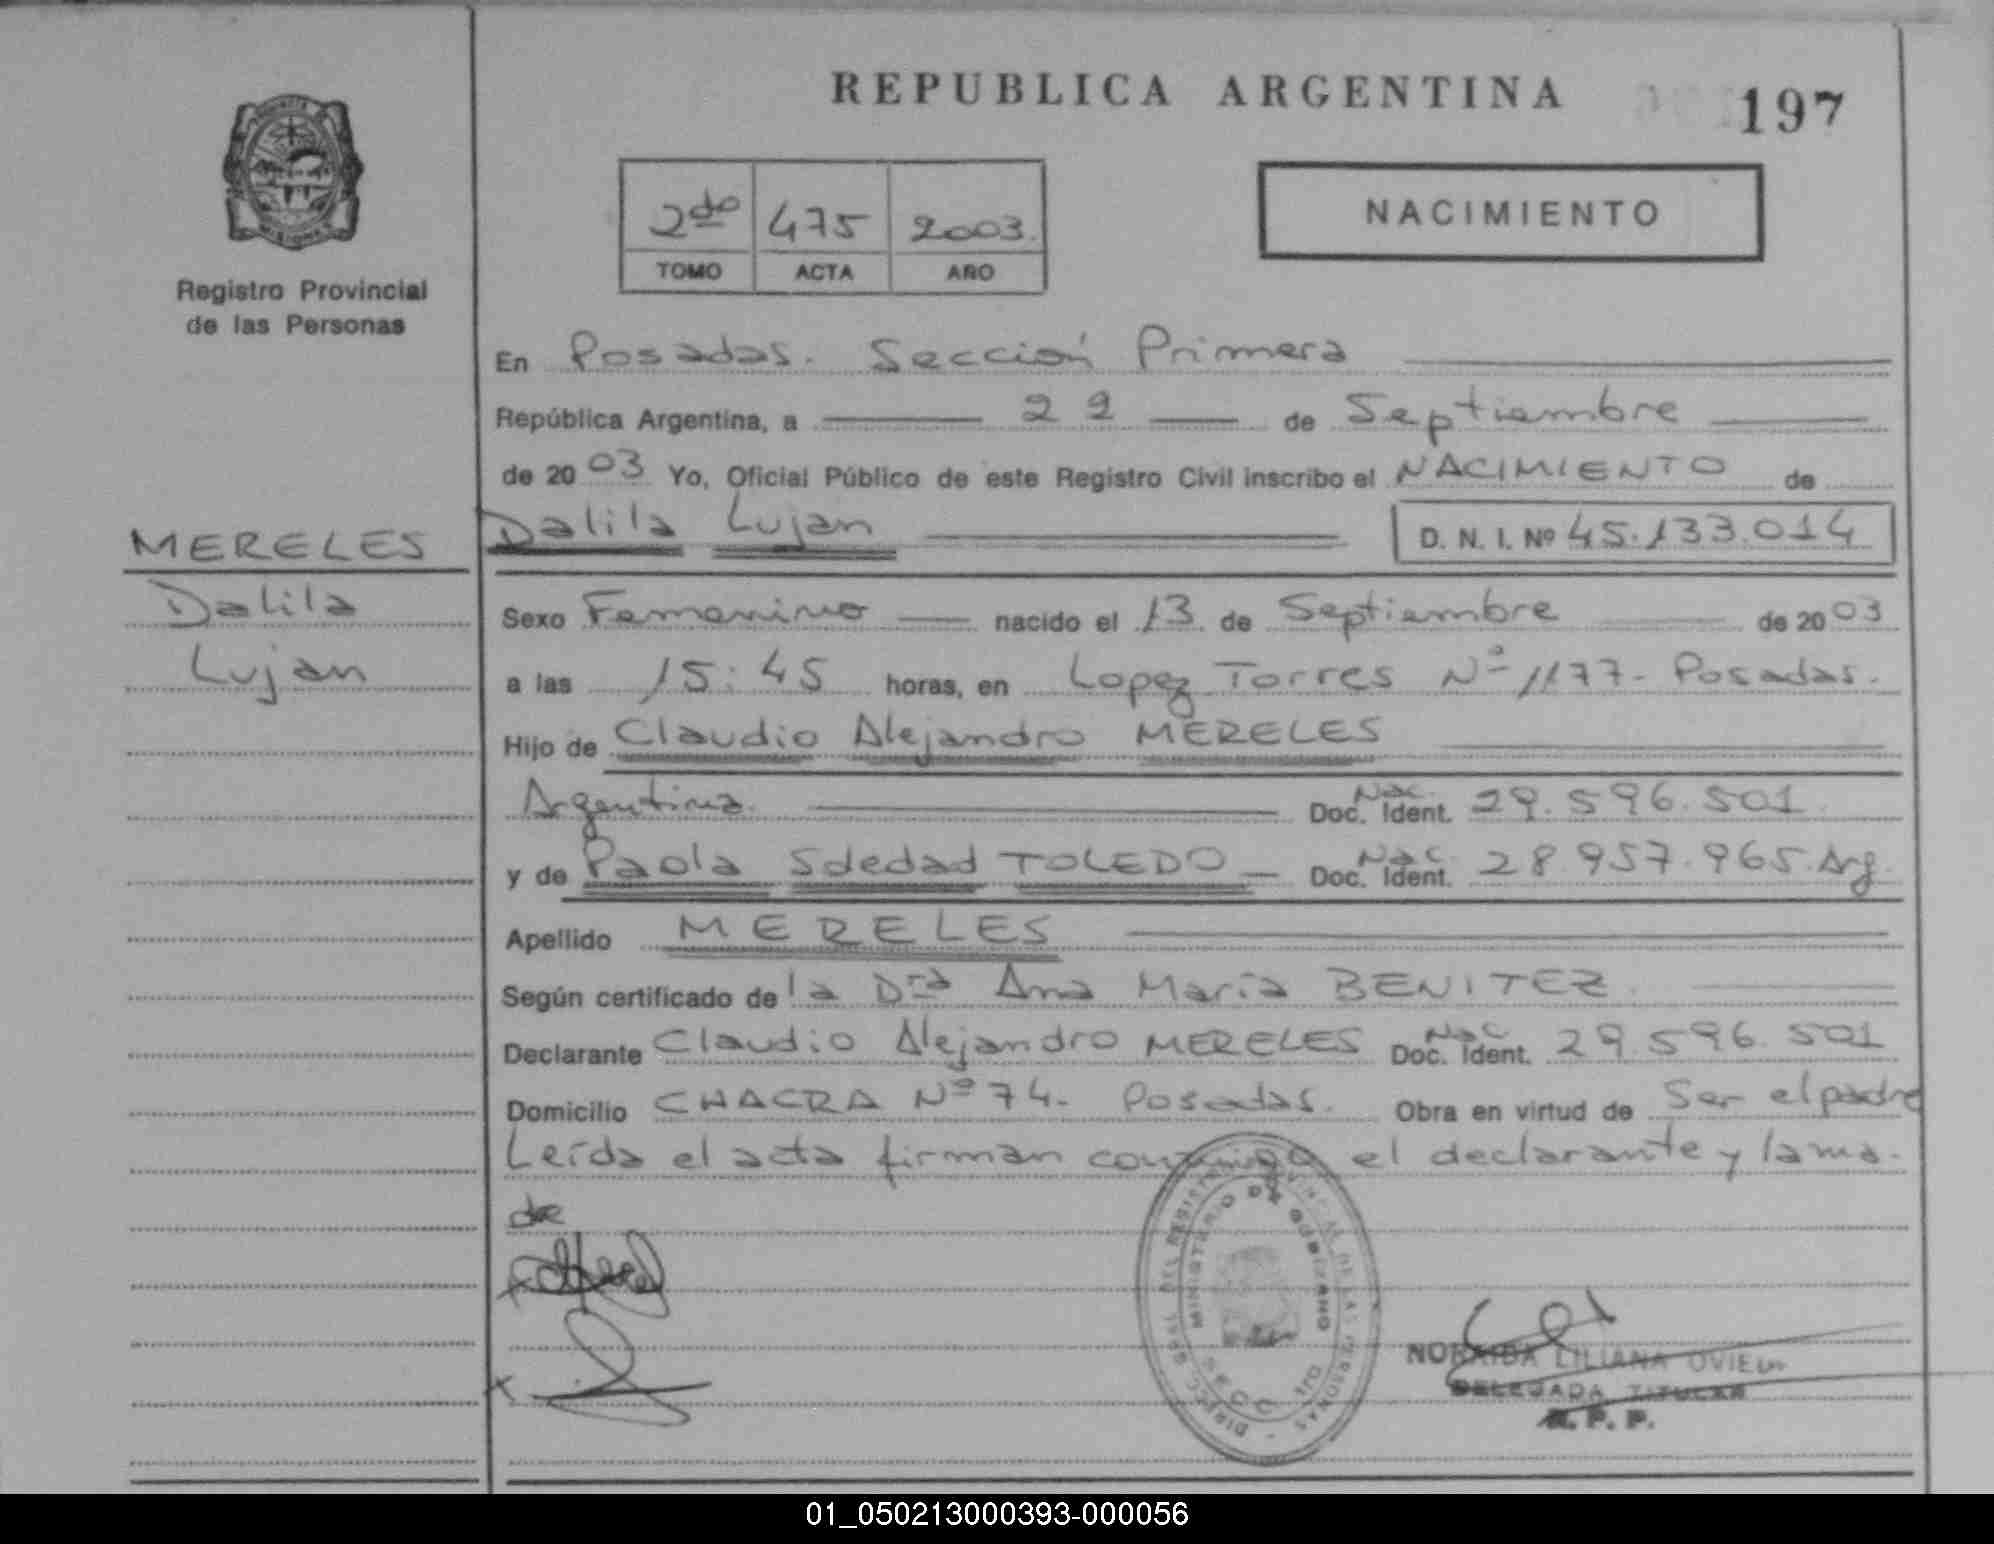 REPUBLICA ARGENTINA
197
2do 475 2003.
TOMO ACTA AÑO
NACIMIENTO
Registro Provincial
de las Personas
En Posadas. Sección Primera
República Argentina, a 22 de Septiembre
de 2003 Yo, Oficial Público de este Registro Civil inscribo el NACIMIENTO de
Dalila Lujan D. N. I. Nº 45.133.014
MERELES
Dalila
Lujan
Sexo Femenino nacido el 13 de Septiembre de 2003
a las 15:45 horas, en Lopez Torres Nº 1177 - Posadas.
Hijo de Claudio Alejandro MERELES
Argentina. Doc. Nac. Ident. 29.596.501
y de Paola Soledad TOLEDO Doc. Nac. Ident. 28.957.965 Arg.
Apellido MERELES
Según certificado de la Dra Ana María BENITEZ.
Declarante Claudio Alejandro MERELES Doc. Nac. Ident. 29.596.501
Domicilio CHACRA Nº 74 - Posadas. Obra en virtud de Ser el padre
Leída el acta firman conmigo el declarante y la ma-
dre
MINISTERIO DE GOBIERNO
NORAIDA LILIANA OVIEDO
DELEGADA TITULAR
R. P. P.
01_050213000393-000056